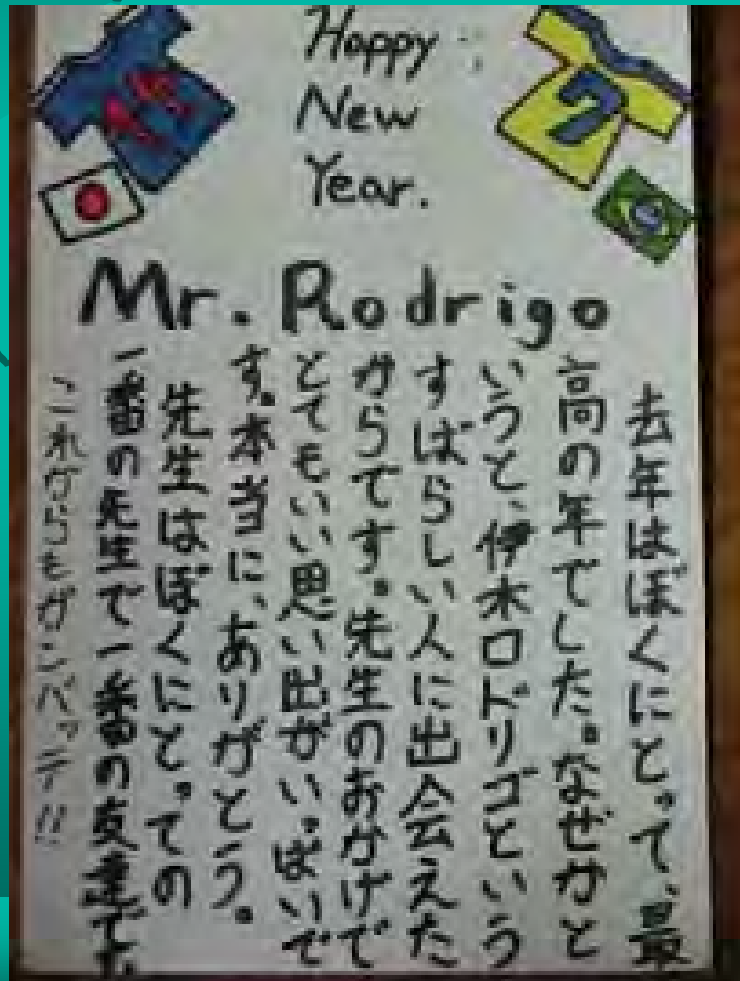 Happy
New
Year.
Mr. Rodrigo
去年はぼくにとって、最
高の年でした。なぜかと
いうと、伊木ロドリゴという
すばらしい人に出会えた
からです。先生のおかげで
とてもいい思い出がいっぱいで
す。本当に、ありがとう。
先生はぼくにとっての
一番の先生で一番の友達です。
これからもガンバッテ!!